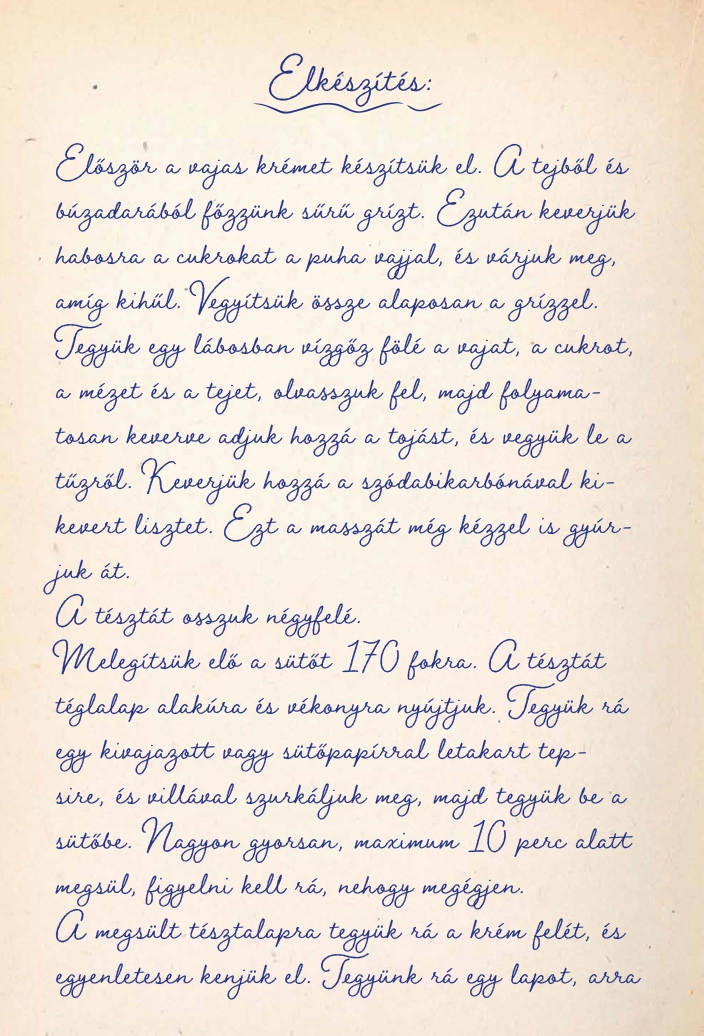 Elkészítés:
Először a vajas krémet készítsük el. A tejből és
búzadarából főzzünk sűrű grízt. Ezután keverjük
habosra a cukrokat a puha vajjal, és várjuk meg,
amíg kihűl. Vegyítsük össze alaposan a grízzel.
Tegyük egy lábosban vízgőz fölé a vajat, a cukrot,
a mézet és a tejet, olvasszuk fel, majd folyama-
tosan keverve adjuk hozzá a tojást, és vegyük le a
tűzről. Keverjük hozzá a szódabikarbónával ki-
kevert lisztet. Ezt a masszát még kézzel is gyúr-
juk át.
A tésztát osszuk négyfelé.
Melegítsük elő a sütőt 170 fokra. A tésztát
téglalap alakúra és vékonyra nyújtjuk. Tegyük rá
egy kivajazott vagy sütőpapírral letakart tep-
sire, és villával szurkáljuk meg, majd tegyük be a
sütőbe. Nagyon gyorsan, maximum 10 perc alatt
megsül, figyelni kell rá, nehogy megégjen.
A megsült tésztalapra tegyük rá a krém felét, és
egyenletesen kenjük el. Tegyünk rá egy lapot, arra